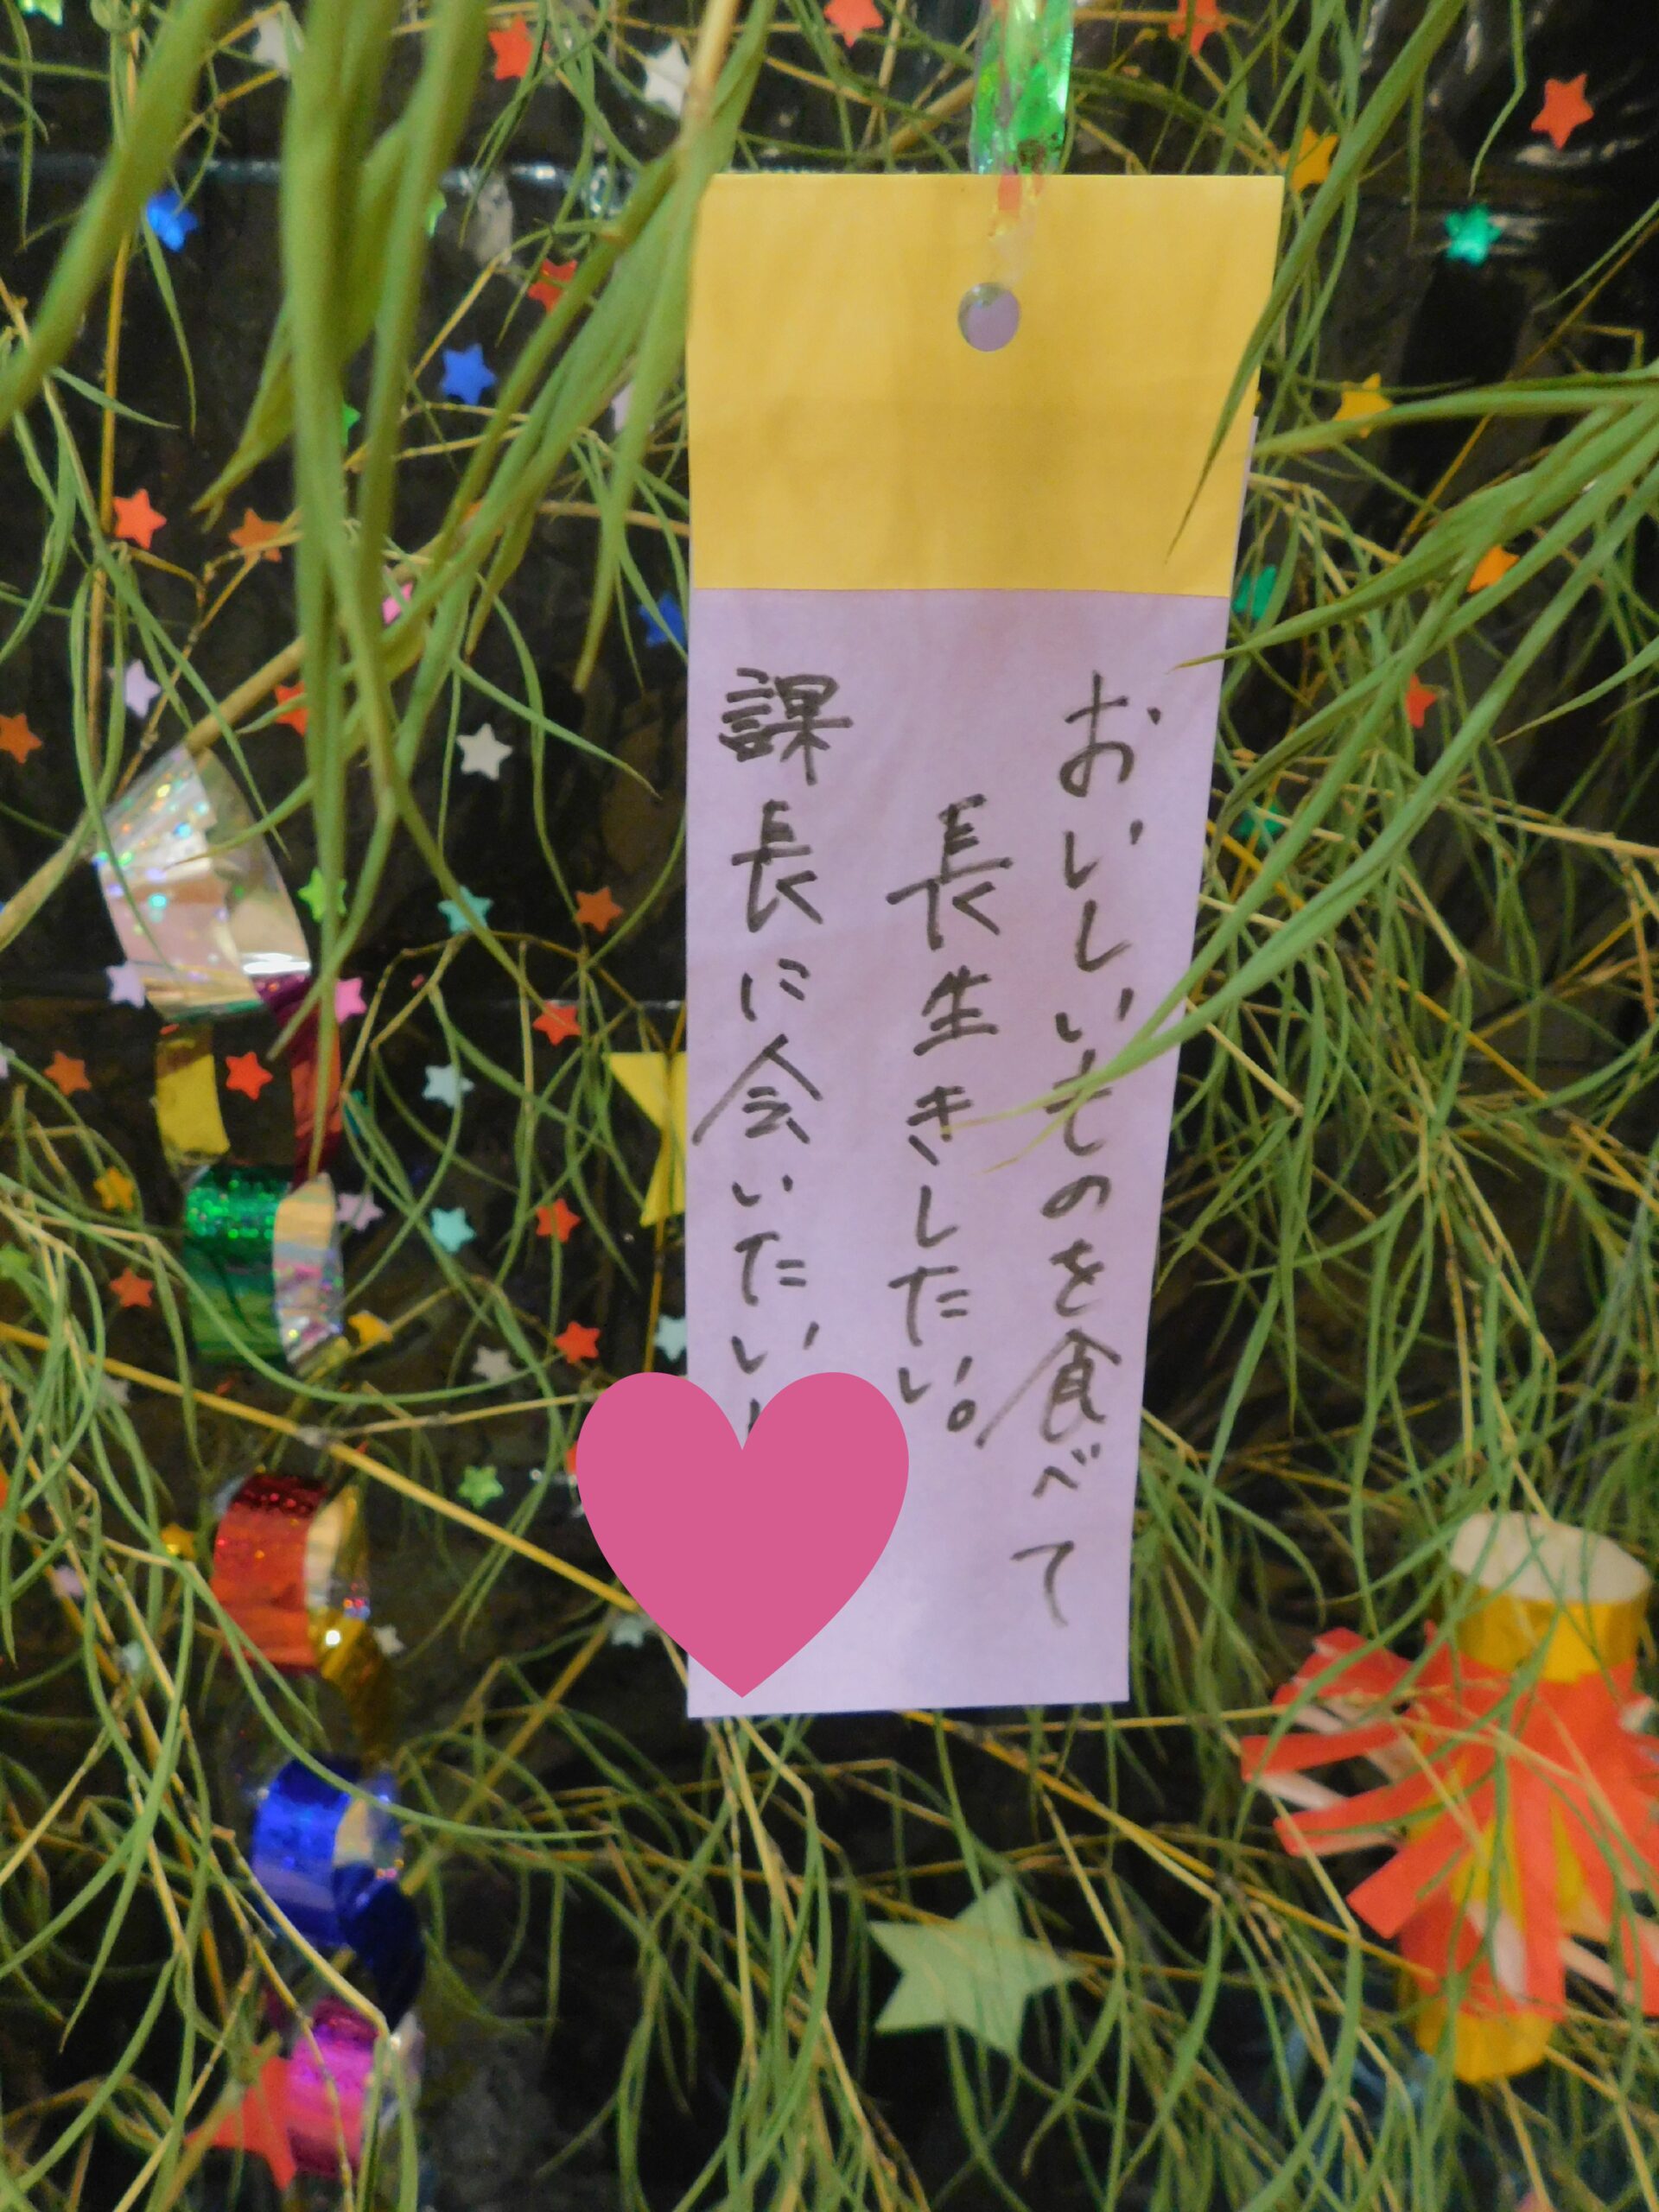 おいしいものを食べて
長生きしたい。
課長に会いたい